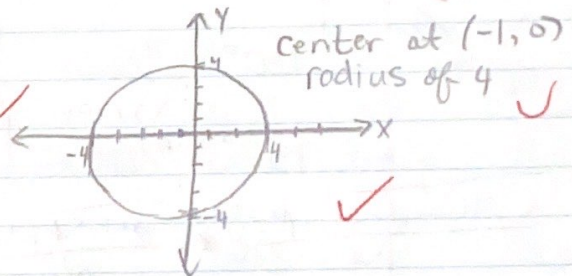 Y
4
center at (-1, 0)
radius of 4
X
-4
4
-4